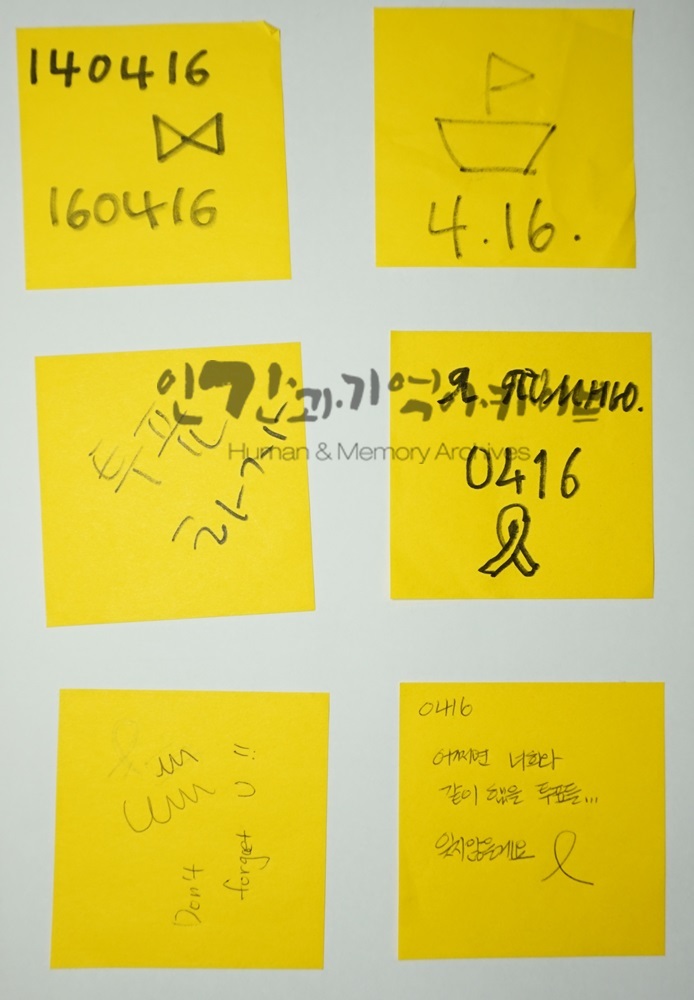 140416
160416
4.16.
인간과기억아카이브
Human & Memory Archives
투표
하기
0416
Don't
forget U !!
0416
어쩌면 너희와
같이 했을 투표들...
잊지않을게요